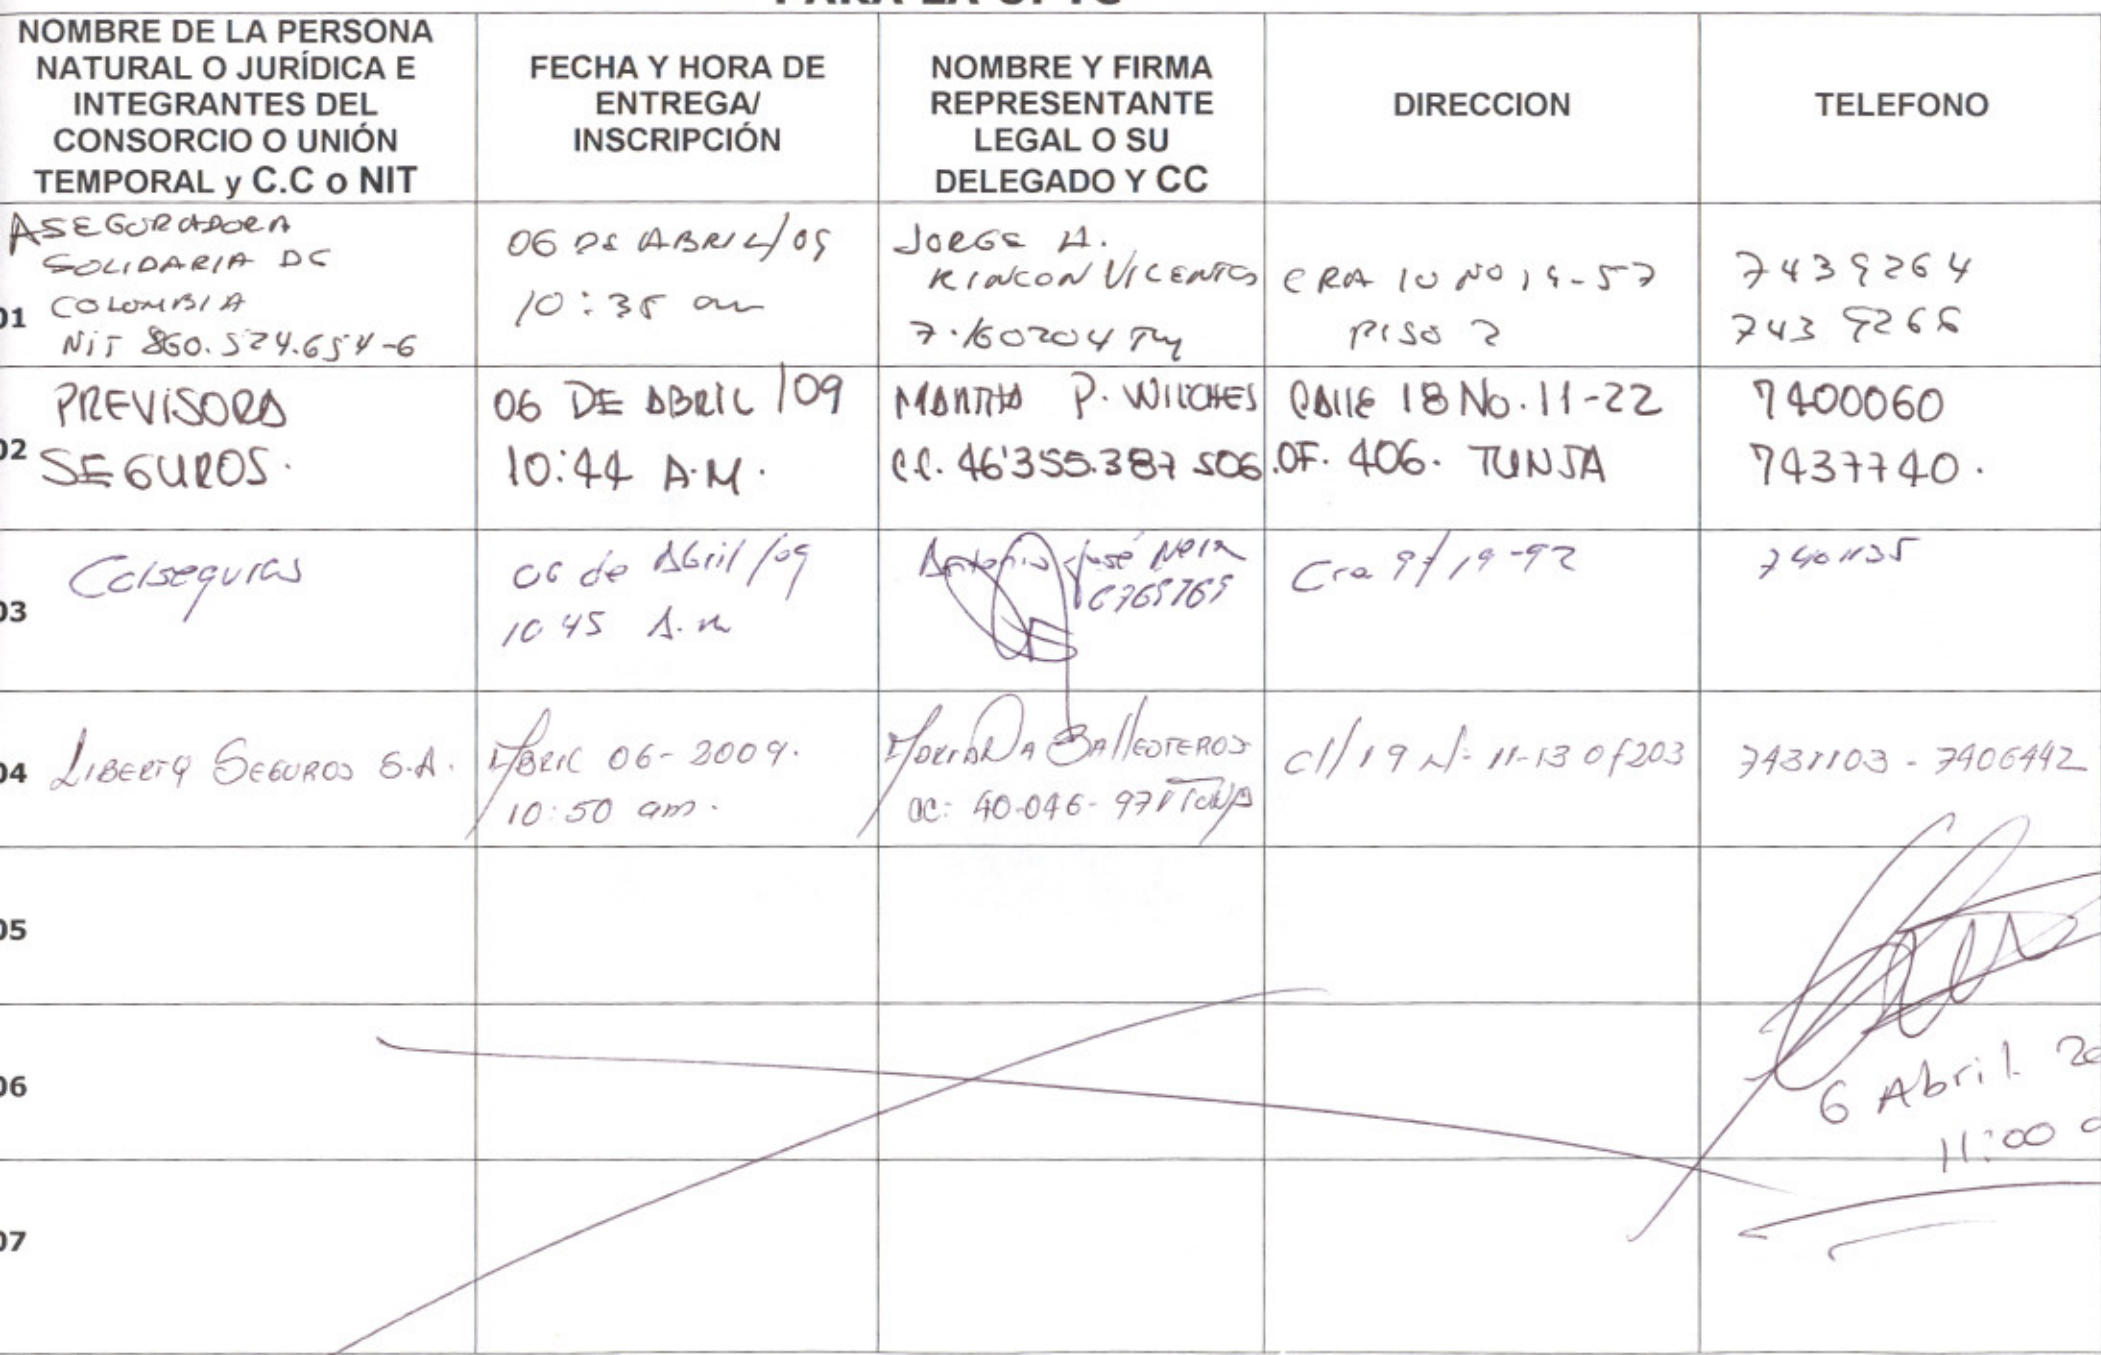 PARA LA UPTC
NOMBRE DE LA PERSONA
NATURAL O JURÍDICA E
INTEGRANTES DEL
CONSORCIO O UNIÓN
TEMPORAL y C.C o NIT
FECHA Y HORA DE
ENTREGA/
INSCRIPCIÓN
NOMBRE Y FIRMA
REPRESENTANTE
LEGAL O SU
DELEGADO Y CC
DIRECCION
TELEFONO
01
ASEGURADORA
SOLIDARIA DE
COLOMBIA
NIT 860.524.654-6
06 DE ABRIL/09
10:35 am
JORGE A.
RINCON VICENTES
7.160204 TUNJA
CRA 10 NO 19-57
PISO 2
7439264
7439265
02
PREVISORA
SEGUROS.
06 DE ABRIL /09
10:44 A.M.
MARTHA P. WILCHES
C.C. 46'355.387 SOG.
CALLE 18 No. 11-22
OF. 406. TUNJA
7400060
7437740.
03
Colseguros
06 de Abril /09
10 45 A.m
Antonio José Neira
6765769
Cra 9 # 19-92
7401135
04
LIBERTY SEGUROS S.A.
ABRIL 06-2009.
10:50 am.
BALLESTEROS
CC: 40.046-971 TUNJA
cl/ 19 N- 11-13 Of203
7431103 - 7406442
05
06
6 Abril 20
11:00 a
07